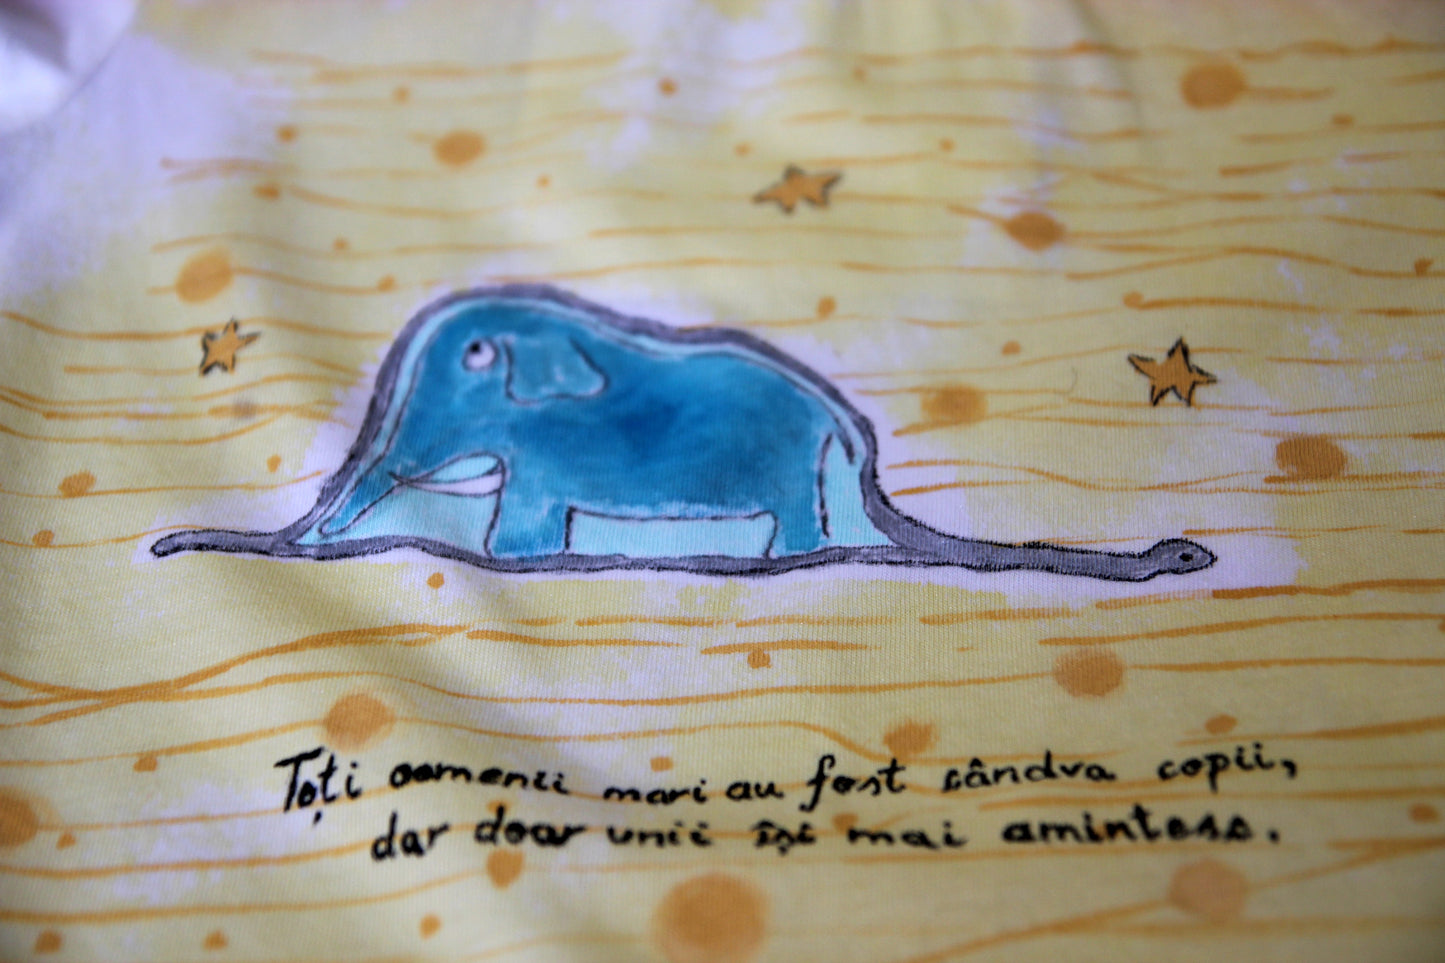 Toți oamenii mari au fost cândva copii,
dar doar unii își mai amintesc.